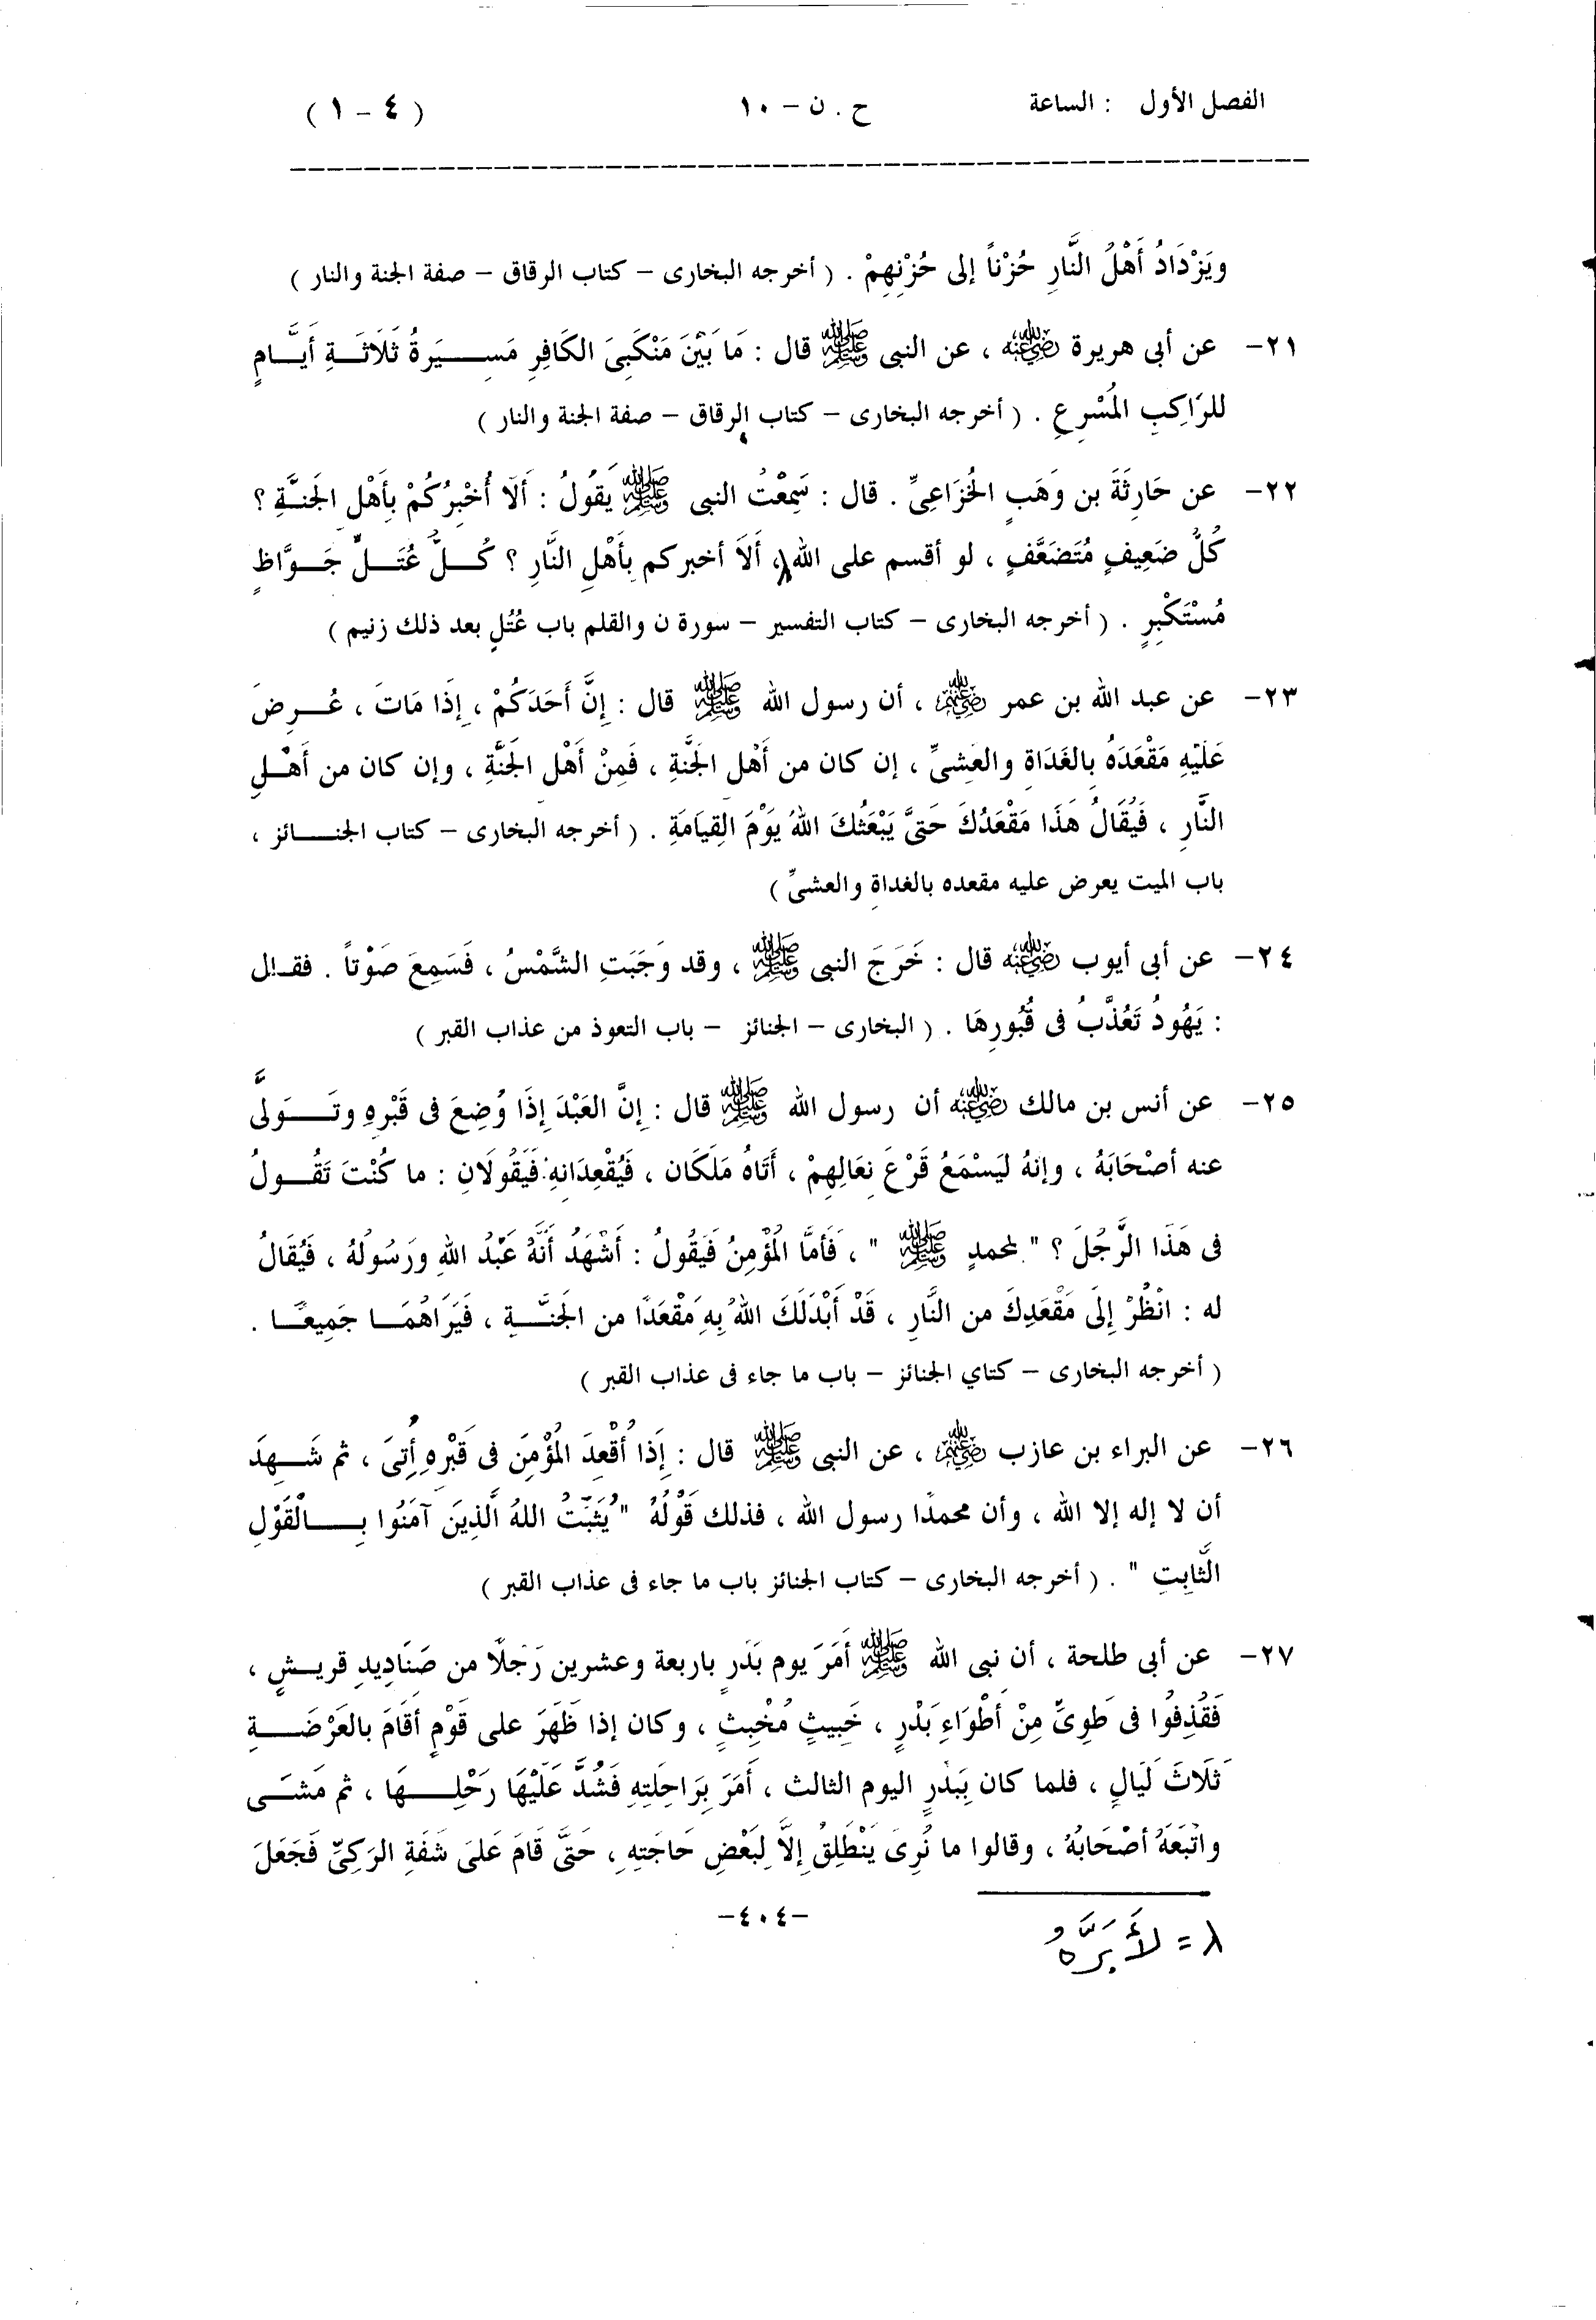 الفصل الأول : الساعة ح . ن – ١٠ ( ٤ – ١ )
ويَزْدَادُ أَهْلُ النَّارِ حُزْناً إلى حُزْنِهِمْ . ( أخرجه البخارى – كتاب الرقاق – صفة الجنة والنار )
٢١– عن أبى هريرة رضي الله عنه ، عن النبى ﷺ قال : مَا بَيْنَ مَنْكَبِىَ الكَافِرِ مَسِـــيَرةُ ثَلَاثَـــةِ أَيَّـــامٍ
للرَاكِبِ المُسْرِعِ . ( أخرجه البخارى – كتاب الرقاق – صفة الجنة والنار )
٢٢– عن حَارِثَةَ بن وَهَبٍ الخُزَاعِىِّ . قال : سَمِعْتُ النبى ﷺ يَقُولُ : أَلَا أُخْبِرُكُمْ بِأَهْلِ الجَنَّـةِ ؟
كُلُّ ضَعِيفٍ مُتَضَعَّفٍ ، لو أقسم على الله ٨، أَلَا أخبركم بِأَهْلِ النَّارِ ؟ كُـــلُّ عُتَـــلٍّ جَـــوَّاظٍ
مُسْتَكْبِرٍ . ( أخرجه البخارى – كتاب التفسير – سورة ن والقلم باب عُتُلٍ بعد ذلك زنيم )
٢٣– عن عبد الله بن عمر رضي الله عنهم ، أن رسول الله ﷺ قال : إِنَّ أَحَدَكُمْ ، إِذَا مَاتَ ، عُـــرِضَ
عَلَيْهِ مَقْعَدَهُ بِالغَدَاةِ والعَشِىِّ ، إن كان من أَهْلِ الجَنَّةِ ، فَمِنْ أَهْلِ الجَنَّةِ ، وإن كان من أَهْـلِ
النَّارِ ، فَيُقَالُ هَذَا مَقْعَدُكَ حَتىَّ يَبْعَثُكَ اللهُ يَوْمَ القِيَامَةِ . ( أخرجه البخارى – كتاب الجنـــائز ،
باب الميت يعرض عليه مقعده بالغداة والعشىِّ )
٢٤– عن أبى أيوب رضي الله عنه قال : خَرَجَ النبى ﷺ ، وقد وَجَبَتِ الشَّمْسُ ، فَسَمِعَ صَوْتاً . فقـال
: يَهُودُ تَعُذَّبُ فى قُبُورِهَا . ( البخارى – الجنائز – باب التعوذ من عذاب القبر )
٢٥– عن أنس بن مالك رضي الله عنه أن رسول الله ﷺ قال : إِنَّ العَبْدَ إِذَا وُضِعَ فى قَبْرِهِ وتَـــوَلىَّ
عنه أصْحَابَهُ ، وإنهُ لَيَسْمَعُ قَرْعَ نِعَالِهِمْ ، أَتَاهُ مَلَكَان ، فَيُقْعِدَانِهِ فَيَقُولَانِ : ما كُنْتَ تَقُـــولُ
فى هَذَا الرَّجُلَ ؟ " لمحمدٍ ﷺ " ، فَأَمَّا المُؤْمِنُ فَيَقُولُ : أَشْهَدُ أَنَّهُ عَبْدُ اللهِ ورَسُولُهُ ، فَيُقَالُ
له : انْظُرْ إِلَى مَقْعَدِكَ من النَّارِ ، قَدْ أَبْدَلَكَ اللهُ بِهِ مَقْعَدًا من الجَنَّـــةِ ، فَيَرَاهُمَـــا جَمِيعًـــا .
( أخرجه البخارى – كتاي الجنائز – باب ما جاء فى عذاب القبر )
٢٦– عن البراء بن عازب رضي الله عنهم ، عن النبى ﷺ قال : إِذا أُقْعِدَ المُؤْمِنَ فى قَبْرِهِ أُتِىَ ، ثم شَـــهِدَ
أن لا إله إلا الله ، وأن محمدًا رسول الله ، فذلك قَوْلُهُ " يُثَبِّتُ اللهُ الَّذِينَ آمَنُوا بِـــالْقَوْلِ
الثَّابِتِ " . ( أخرجه البخارى – كتاب الجنائز باب ما جاء فى عذاب القبر )
٢٧– عن أبى طلحة ، أن نبى الله ﷺ أَمَرَ يوم بَدَرٍ باربعة وعشرين رَجُلًا من صَنَادِيدِ قريـشٍ ،
فَقُذِفُوا فى طَوِىٍّ مِنْ أَطْوَاءِ بَدْرٍ ، خَبِيثٍ مُخْبِثٍ ، وكان إذا ظَهَرَ على قَوْمٍ أَقَامَ بالعَرْصَـــةِ
ثَلَاثَ لَيَالٍ ، فلما كان بِبَدْرٍ اليوم الثالث ، أَمَرَ بِرَاحِلَتِهِ فَشُدَّ عَلَيْهَا رَحْلِـــهَا ، ثم مَشَـــى
واتْبَعَهُ أصْحَابُهُ ، وقالوا ما نُرِىَ يَنْطَلِقُ إِلَّا لِبَعْضِ حَاجَتِهِ ، حَتىَّ قَامَ عَلَىَ شَفَةِ الرَكِىِّ فَجَعَلَ
–٤٠٤–
٨ = لأَبَرَّهُ